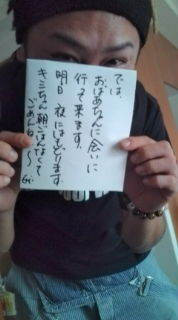 では、
おばあちゃんに会いに
行って来ます。
明日 夜にはもどります
キミちゃん朝ごはんなくて
ごめんね〜。